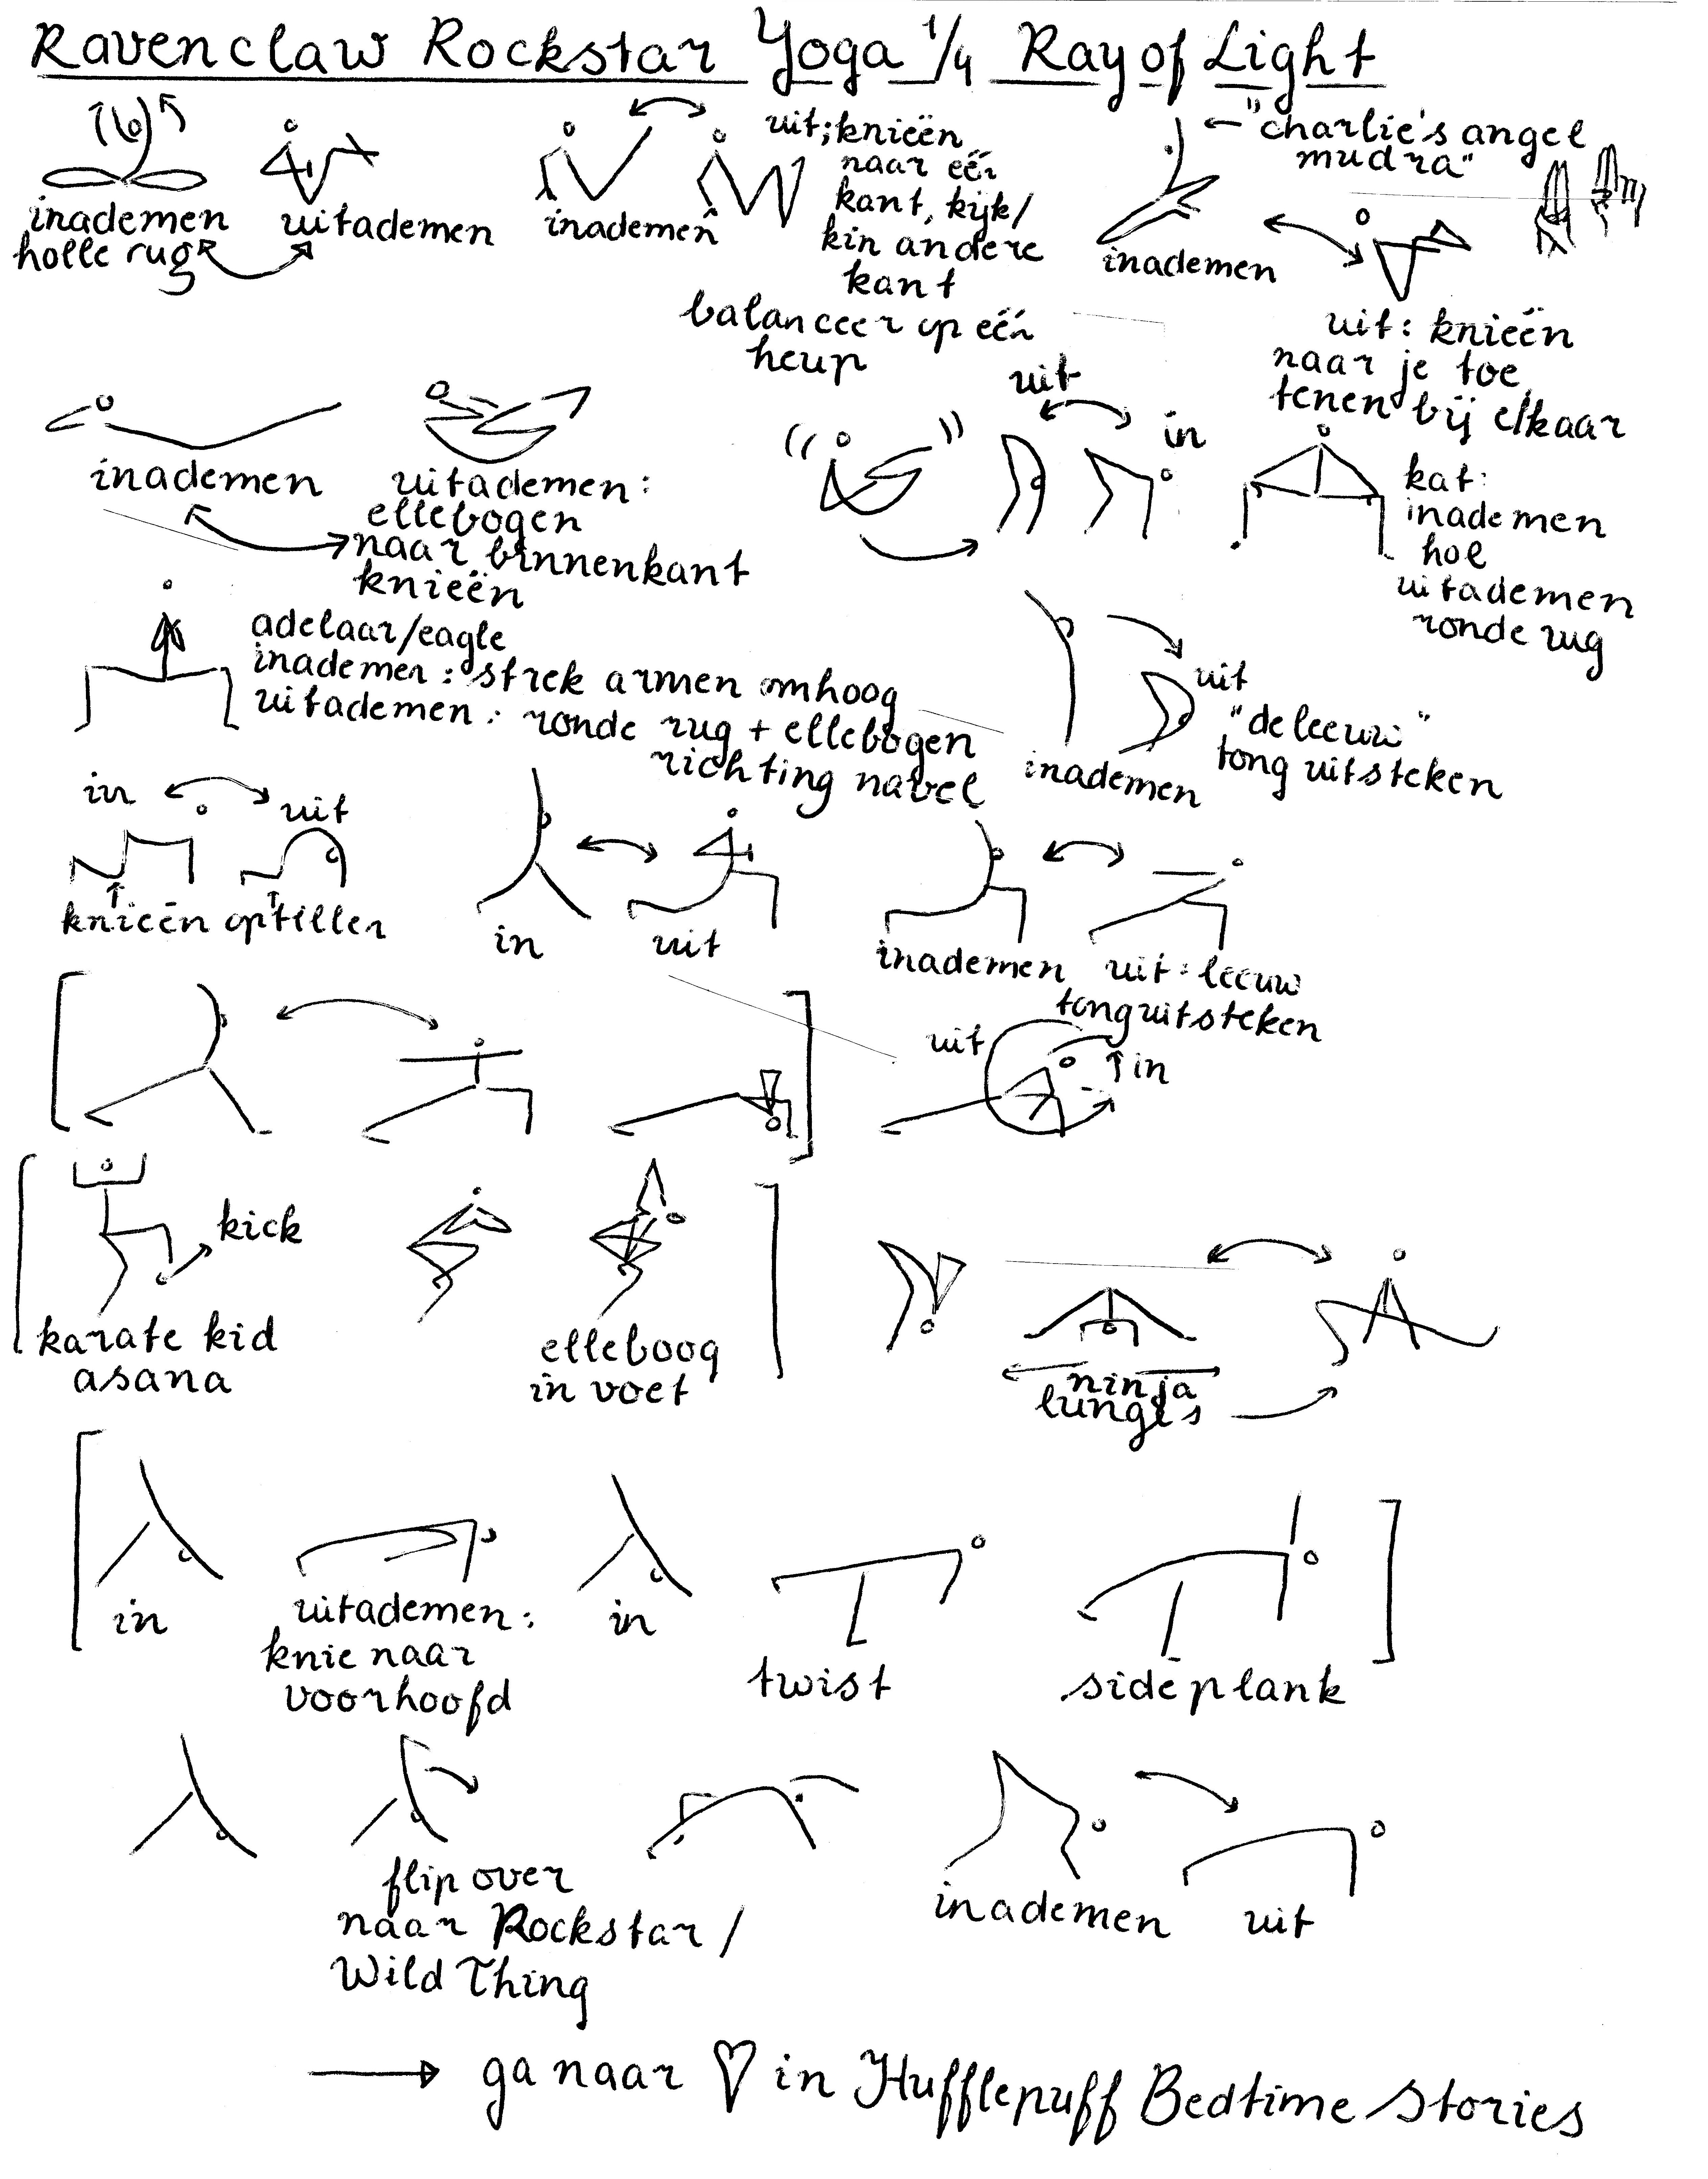 Ravenclaw Rockstar Yoga 1/4 Ray of Light
inademen
holle rug
uitademen
inademen
uit; knieën
naar één
kant, kijk/
kin andere
kant
balanceer op één
heup
"charlie's angel
mudra"
inademen
uit: knieën
naar je toe
tenen bij elkaar
inademen
uitademen:
ellebogen
naar binnenkant
knieën
uit
in
kat:
inademen
hol
uitademen
ronde rug
adelaar/eagle
inademen: strek armen omhoog
uitademen: ronde rug + ellebogen
richting navel
inademen
uit
"de leeuw"
tong uitsteken
in
uit
knieën optillen
in
uit
inademen
uit: leeuw
tong uitsteken
uit
in
kick
karate kid
asana
elleboog
in voet
ninja
lunges
in
uitademen:
knie naar
voorhoofd
in
twist
sideplank
flip over
naar Rockstar/
Wild Thing
inademen
uit
→ ga naar ♡ in Hufflepuff Bedtime Stories